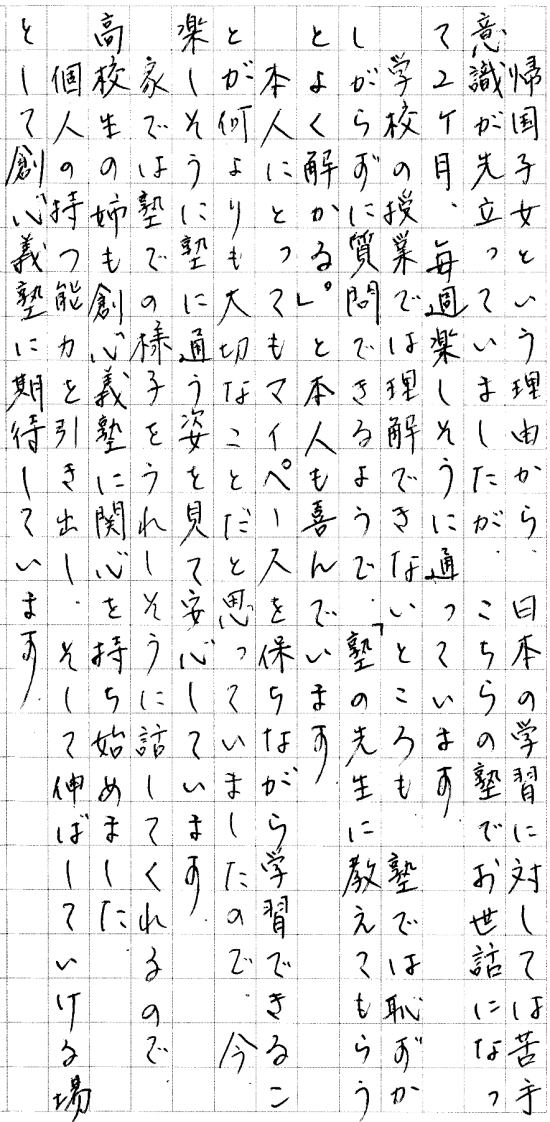 帰国子女という理由から、日本の学習に対しては苦手
意識が先立っていましたが、こちらの塾でお世話になっ
て2ヶ月、毎週楽しそうに通っています。
学校の授業では理解できないところも、塾では恥ずか
しがらずに質問できるようで、「塾の先生に教えてもらう
とよく解かる」。と本人も喜んでいます。
本人にとってもマイペースを保ちながら学習できるこ
とが何よりも大切なことだと思っていましたので、今
楽しそうに塾に通う姿を見て安心しています。
家では塾での様子をうれしそうに話してくれるので
高校生の姉も創心義塾に関心を持ち始めました。
個人の持つ能力を引き出し、そして伸ばしていける場
として創心義塾に期待しています。